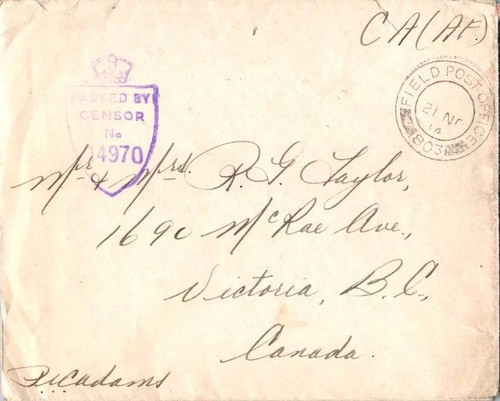 CA(AF)
PASSED BY
CENSOR
No
14970
FIELD POST OFFICE
803
21 NO
Mr & Mrs. R. G. Taylor,
1690 McRae Ave.,
Victoria, B.C.,
Canada.